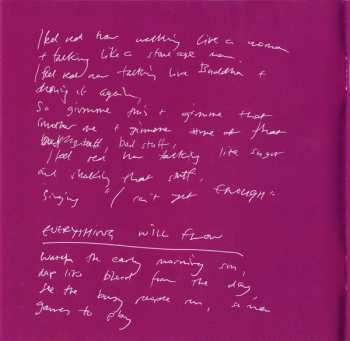 I feel real now walking like a woman
+ talking like a stone age man.
I feel real now talking like Buddha +
doing it again,
So gimme this + gimme that
Smother me + gimme some of that
stuff, bad stuff,
I feel real now talking like sugar
and shaking that stuff.
Singing "I can't get ENOUGH"
EVERYTHING WILL FLOW
Watch the early morning sun,
drip like blood from the day
See the busy people run, so many
games to play